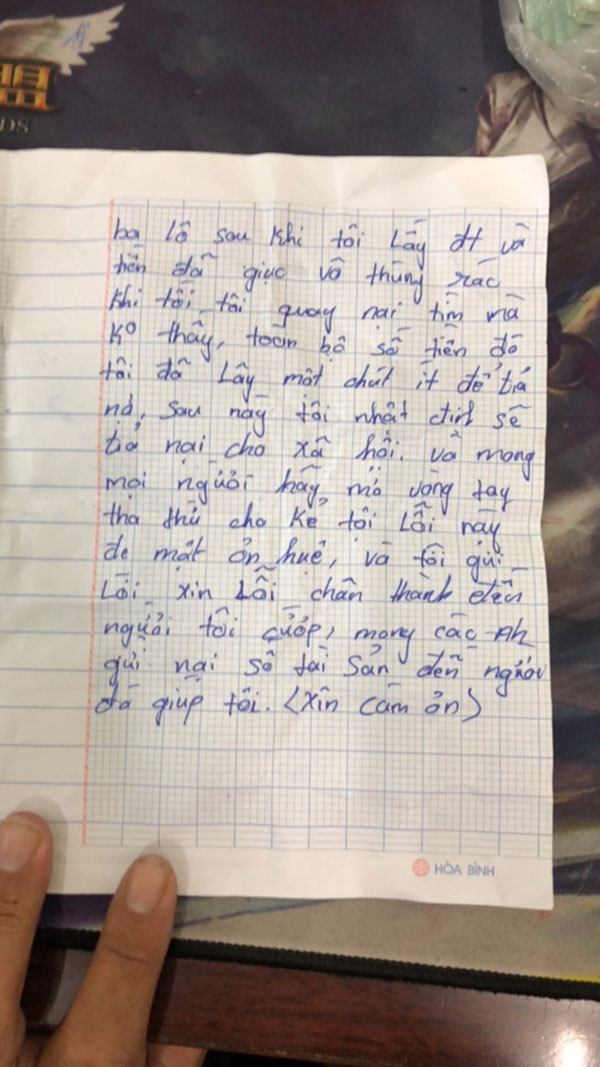 DS
ba lô sau khi tôi Lấy đt và
tiền đã giục vô thùng rác
khi tôi tôi quay nai tìm mà
Ko thấy, toàn bộ số tiền đó
tôi đã Lấy một chút ít để trả
nợ, sau này tôi nhất định sẽ
trả nai cho xã hội. và mong
mọi người hãy mở vòng tay
tha thứ cho kẻ tội Lỗi này
de một ơn huệ, và tôi gửi
Lời xin Lỗi chân thành đến
người tôi cướp, mong các Ah
gửi nại số tài sản đến người
đó giúp tôi. <Xin Cảm ơn>
HÒA BÌNH